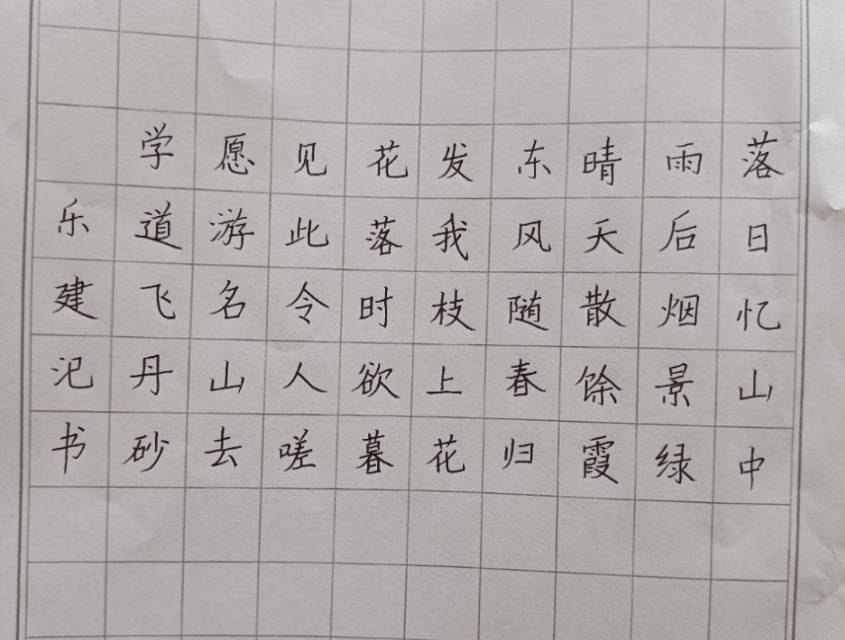 落日忆山中
雨后烟景绿
晴天散馀霞
东风随春归
发我枝上花
花落时欲暮
见此令人嗟
愿游名山去
学道飞丹砂
乐建汜书